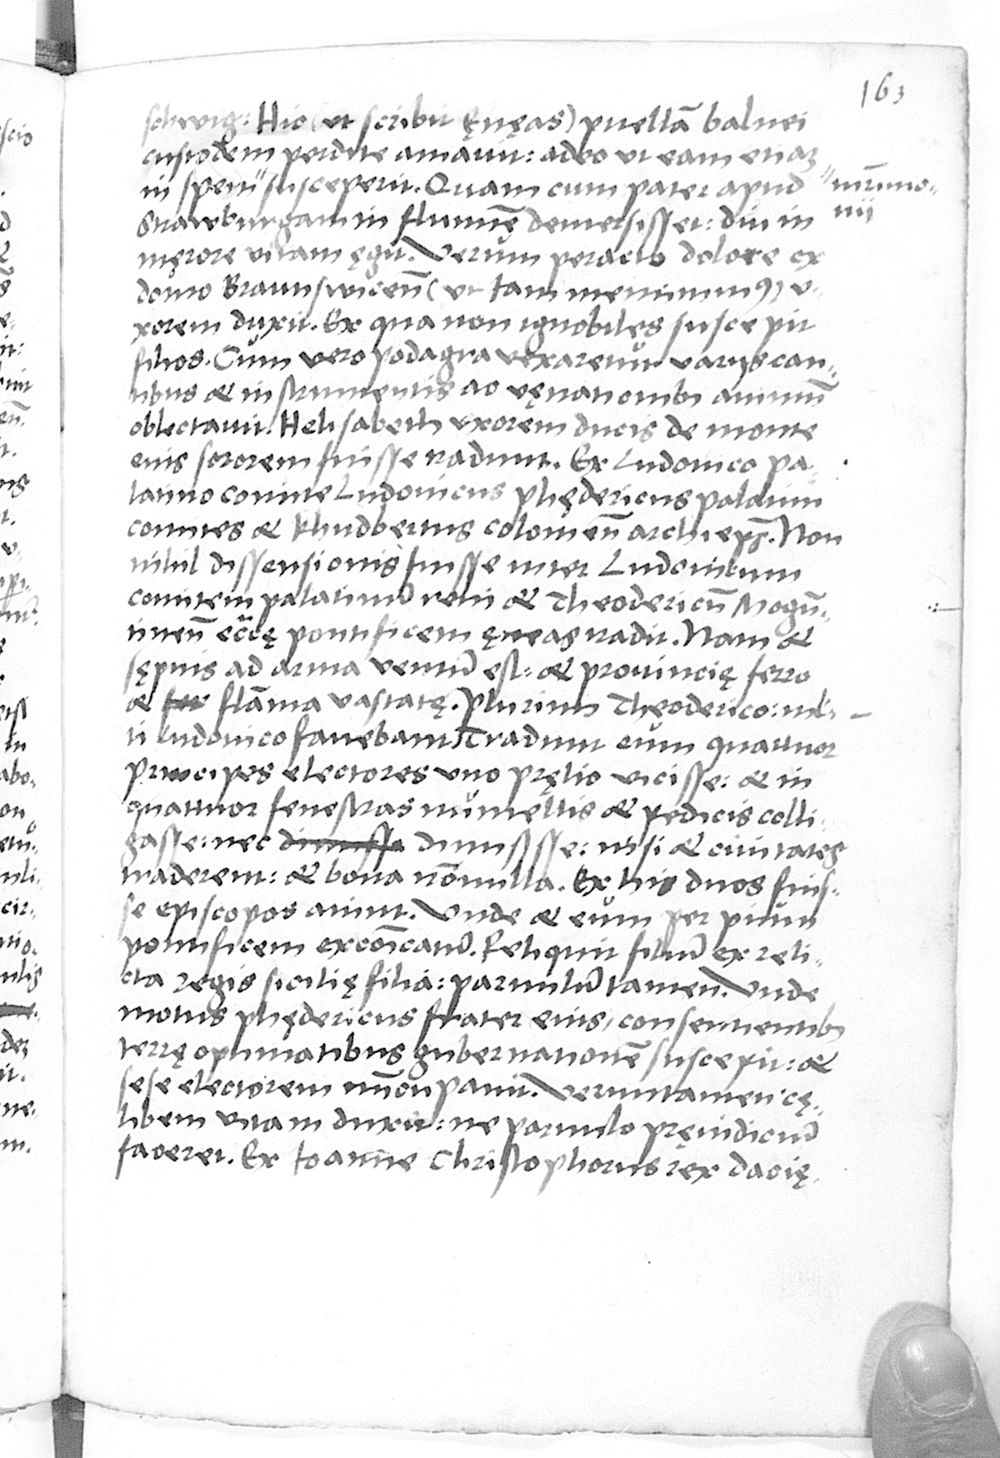 163
schwig: Hic (ut scribit Ęnęas) puellā balnei
custodem perdite amavit: adeo ut eam etiaʒ
in spem susceperit. Quam cum pater apud
mr̄imo-
nii
Strawburgam in flumine demersisset: diu in
męrore vitam ęgit. Verum peracto dolore ex
domo Braunswicen̄ (ut iam meminimus) u-
xorem duxit. Ex qua non ignobiles suscepit
filios. Cum vero podagra vexaretur variis can-
tibus & instrumentis ac vęnationibus animū
oblectavit. Helisabeth uxorem ducis de monte
eius sororem fuisse tradunt. Ex Ludovico pa-
latino comite Ludovicus phędericus palatini
comites & Rhudbertus colonien̄ archieps̄. Non
nihil dissensionis fuisse inter Ludovicum
comitem palatinū reni & Theodericū Mogū-
tinen̄ eccīę pontificem ęneas tradit. Nam &
sępius ad arma ventū est: & provincię ferro
& flāma vastatę. Plurimi Theoderico: ml-
ti ludovico favebant. Tradunt eum quattuor
principes electores uno pręlio vicisse: & in
quattuor fenestras numellis & pedicis colli-
gasse: nec dimisisse: nisi & civitates
traderent: & bona nōnulla. Ex his duos fuis-
se episcopos aiunt. Unde & eum per pium
pontificem excōicatū. Reliquit filiū ex reli-
cta regis sicilię filia: parvulū tamen. Unde
motus phędericus frater eius, consentientibus
terrę optimatibus gubernationē suscepit: &
sese electorem nūcupavit. Veruntamen cę-
libem vitam duxit: ne parvulo pręiudiciū
faceret. Ex Ioanne Christophorus rex dacię